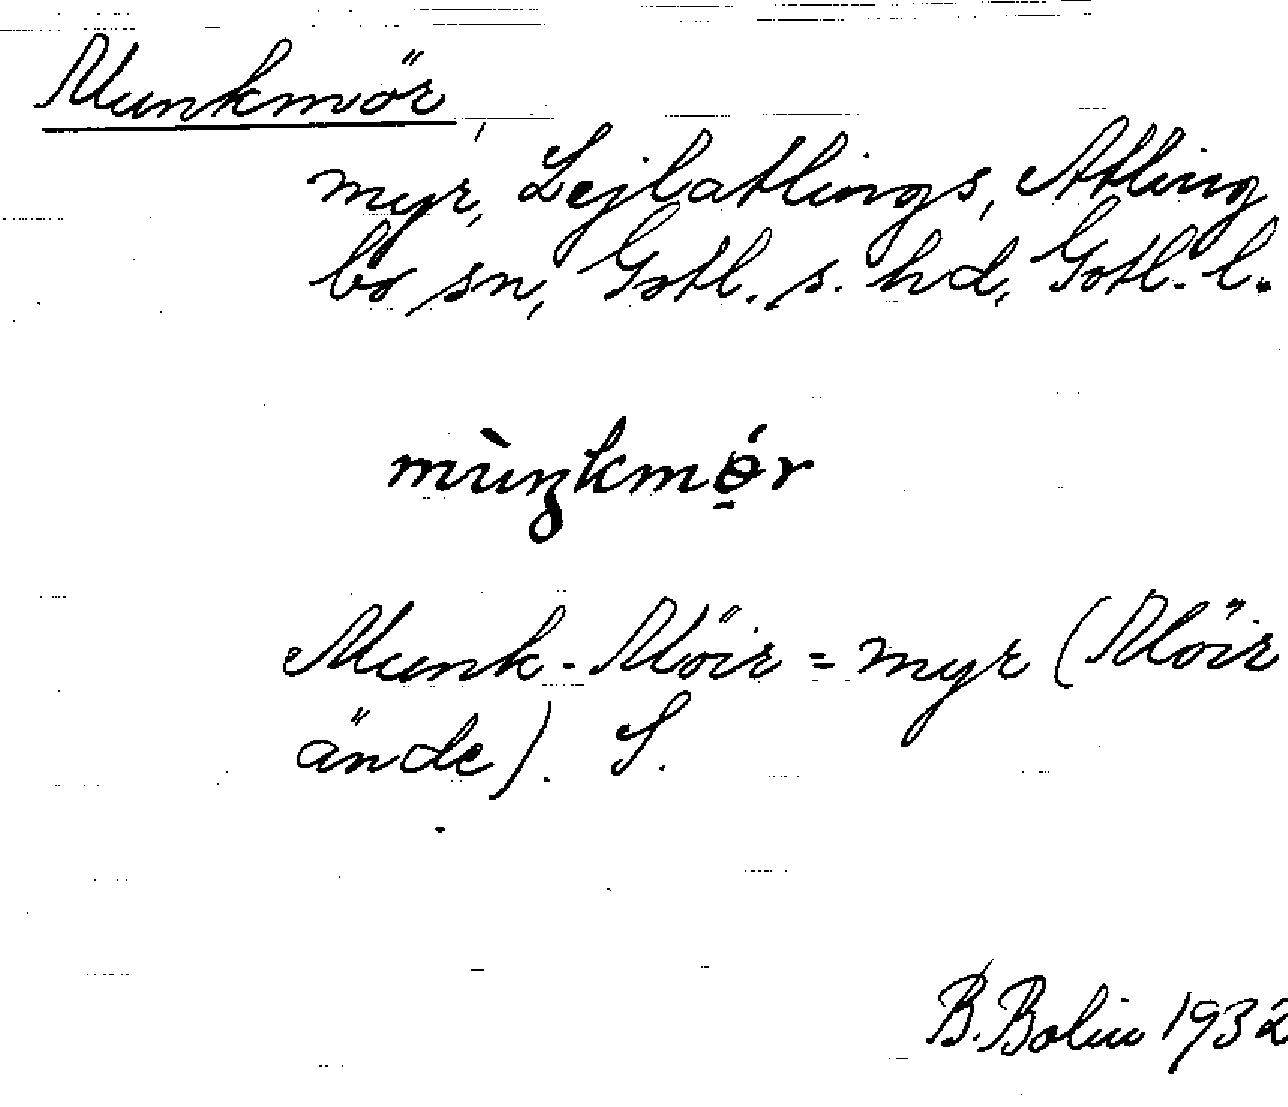 Munkmör,
myr, Lejlatlings, Atling
bo sn, Gotl. s. hd, Gotl. l.
mùŋkmö́r
Munk-Möir = myr (Möir
ände). S.
B. Bolin 1932